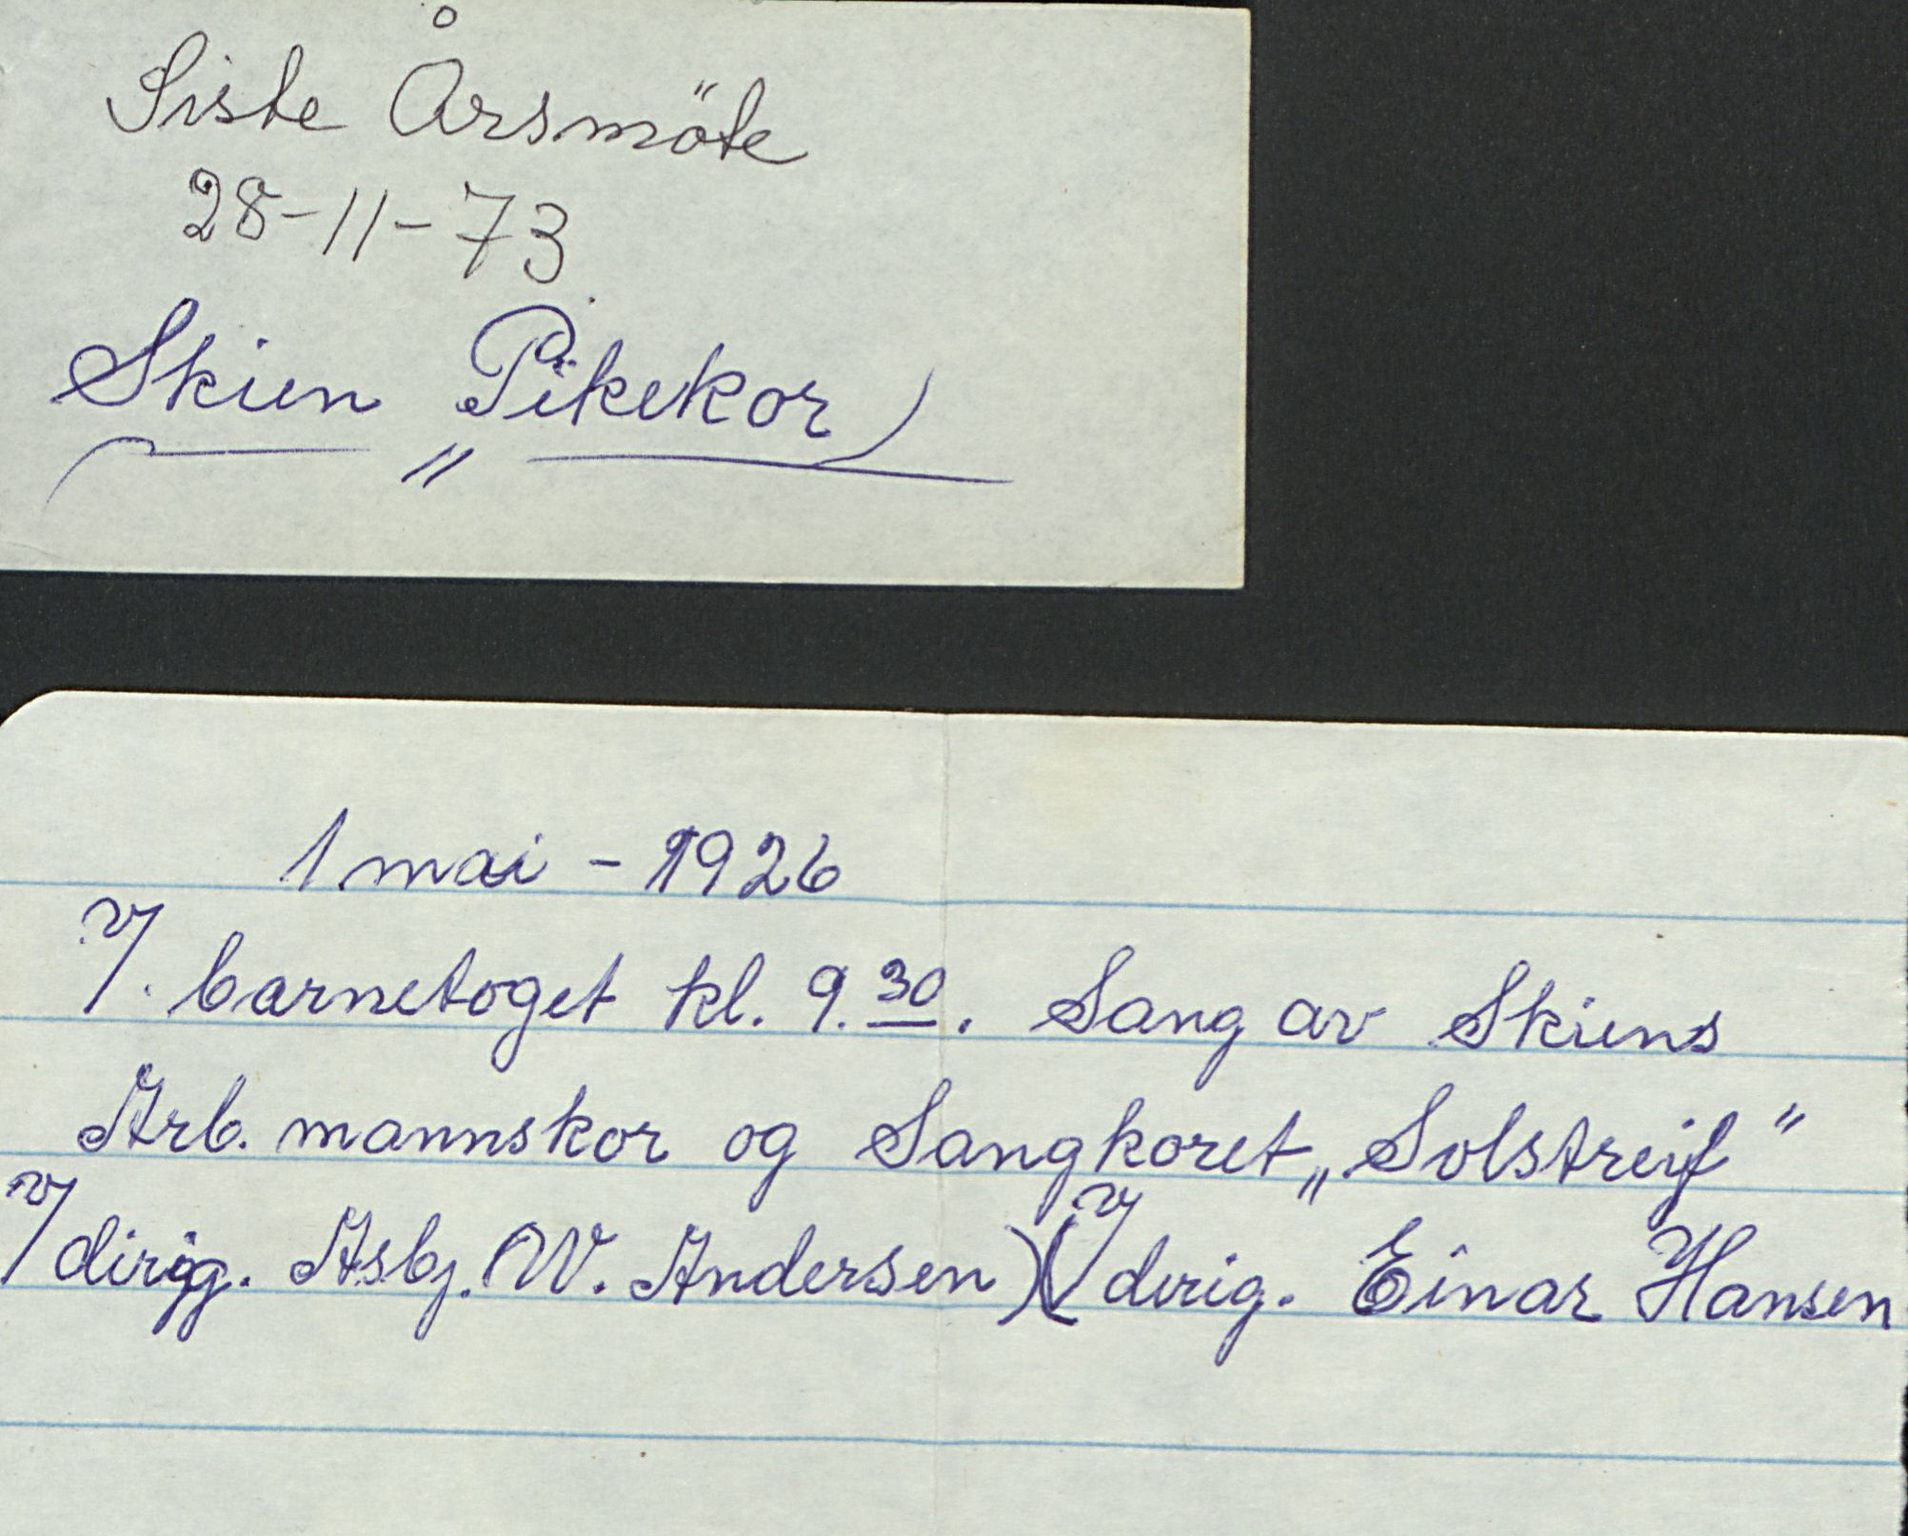 Siste Årsmöte
28-11-73
Skien Pikekor
"
1 mai - 1926
v/. barnetoget kl. 9.30. Sang av Skiens
Arb. mannskor og Sangkoret „Solstreif"
v/dirigg. Asbj. W. Andersen) (v/dirig. Einar Hansen